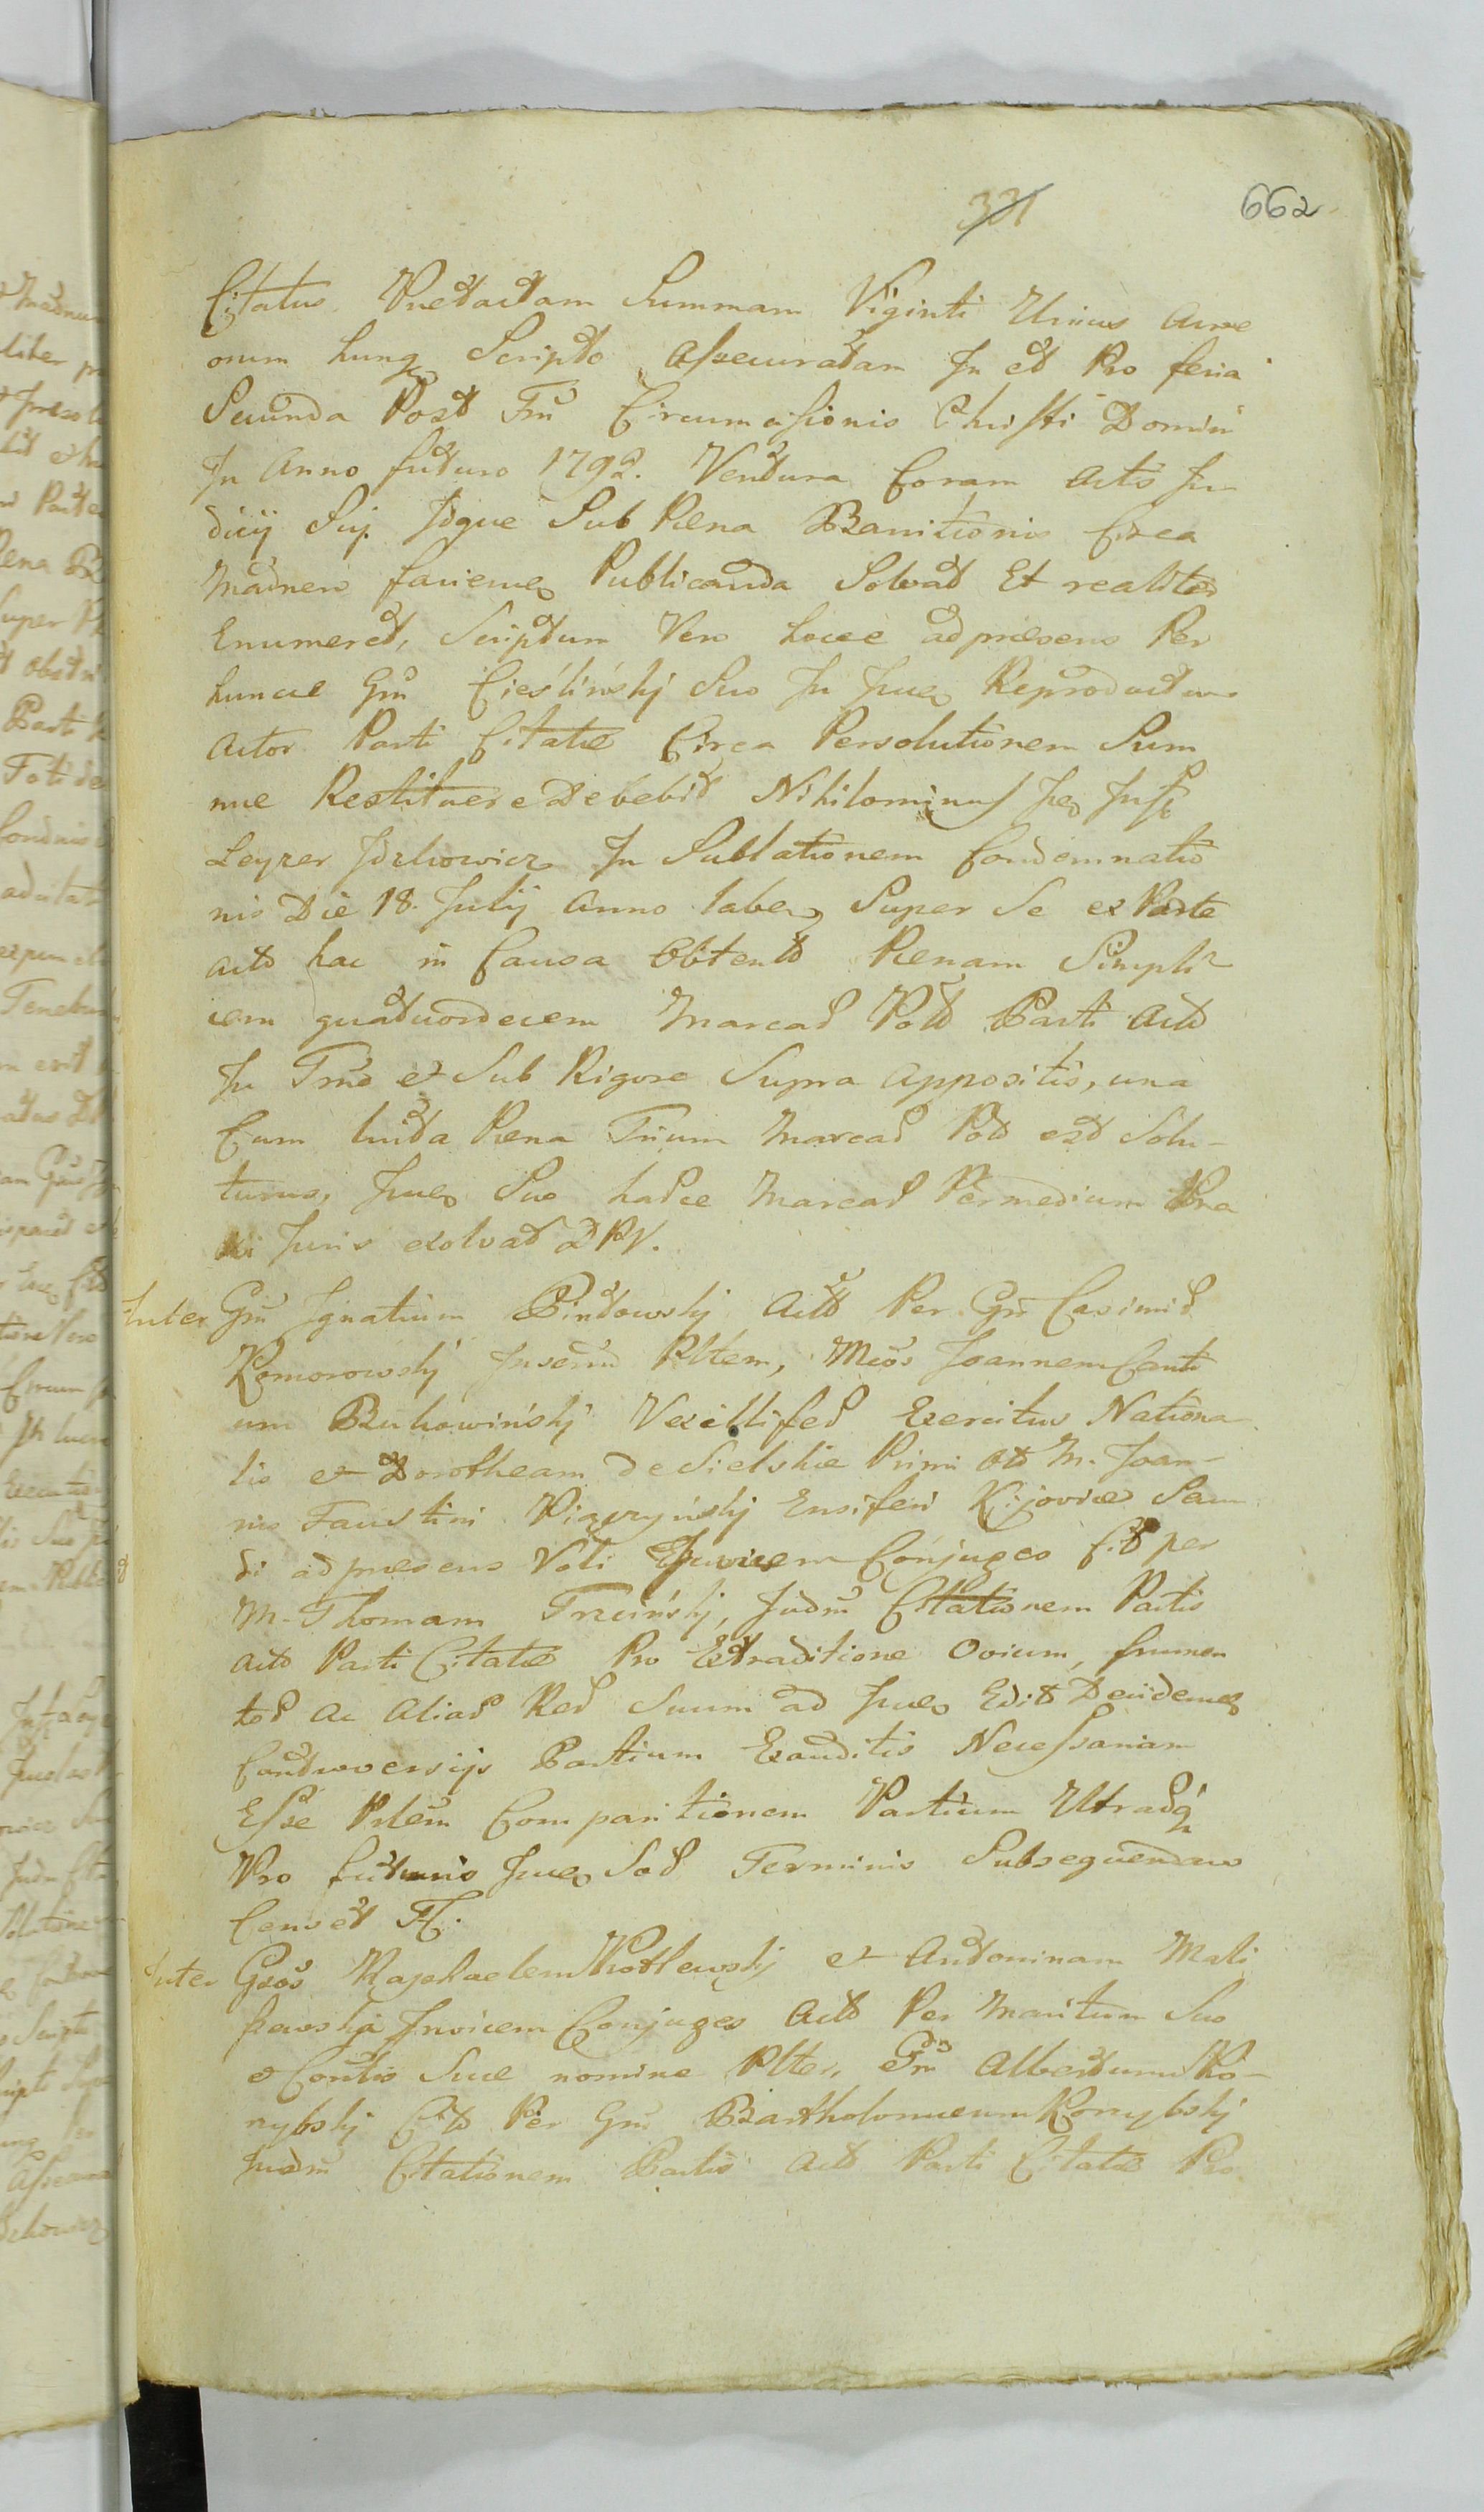 331 662
Citatus Praetactam Summam Viginti Unius Aure
orum hung Scripto Assecuratam In et Pro feria
Secunda Post Fm Circumcisionis Christi Domini
In Anno futuro 1792. Ventura Coram Actis Ju
dicij Sui Idque Sub Paena Banitionis Circa
faciem Publicanda Solvat Et realiter
Enumeret, Scriptum Vero hocce adpraesens Per
huncce Gm Cieśliński Suo In Jud Reproductum
Actor Parti Citatae Circa Persolutionem Sum
mae Restituere Debebit Nihilominus
Leyzer In Sublationem Condemnatio
nis Die 18. Julij Anno labem Super Se ex Parte
Acto hac in Causa Obtent Paenam Simpli
cem quatuordecem Marcas Pol Parti Act
In Tmo et Sub Rigore Supra Appositis, una
Cum luita Paena Trium Marcas Pol est Solu-
turus, Suo hasce Marcas Permedium Pra
xi Juris exolvat DPV.
Inter Gm Ignatium Pintowski Act Per Gm Casimir
Komorowski Pltem, Mcos Joannem Canti
um Bukowiński Vexillifer Exercitus Nationa
lis et Dorotheam de Sielskie Primi Ott M. Joan-
nis Faustini Ensiferi Kijoviae Sau
di adpraesens Voti Invicem Conjuges Cit per
M. Thomam Trzciński, Judm Citationem Partis
Act Parti Citatae Pro Extraditione Ovium, frumen
tor Ac Aliar Rer Suum ad Edit Decidem
Controversijs Partium Exauditis Necessariam
Esse Comparitionem Partium Utrasq
Pro futuris Terminis Subsequendam
Censet
Inter Gsos Raphaelem et Antoninam Mali
szewska Invicem Conjuges Act Per Maritum Suo
et Contis Suae nomine Plter, Gm Albertum Ko-
rybski Cit Per Gm Bartholomaeum Korrybski
Judm Citationem Partis Act Parti Citatae Pro